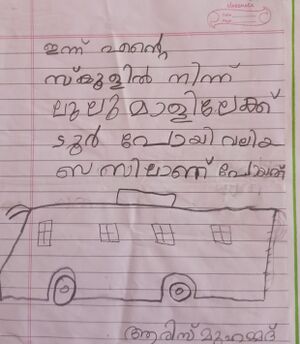 ഇന്ന് എന്റെ
സ്കൂളിൽ നിന്ന്
ലുലു മാളിലേക്ക്
ടൂർ പോയി വലിയ
ബസിലാണ് പോയത്
ആരിസ് മുഹമ്മദ്